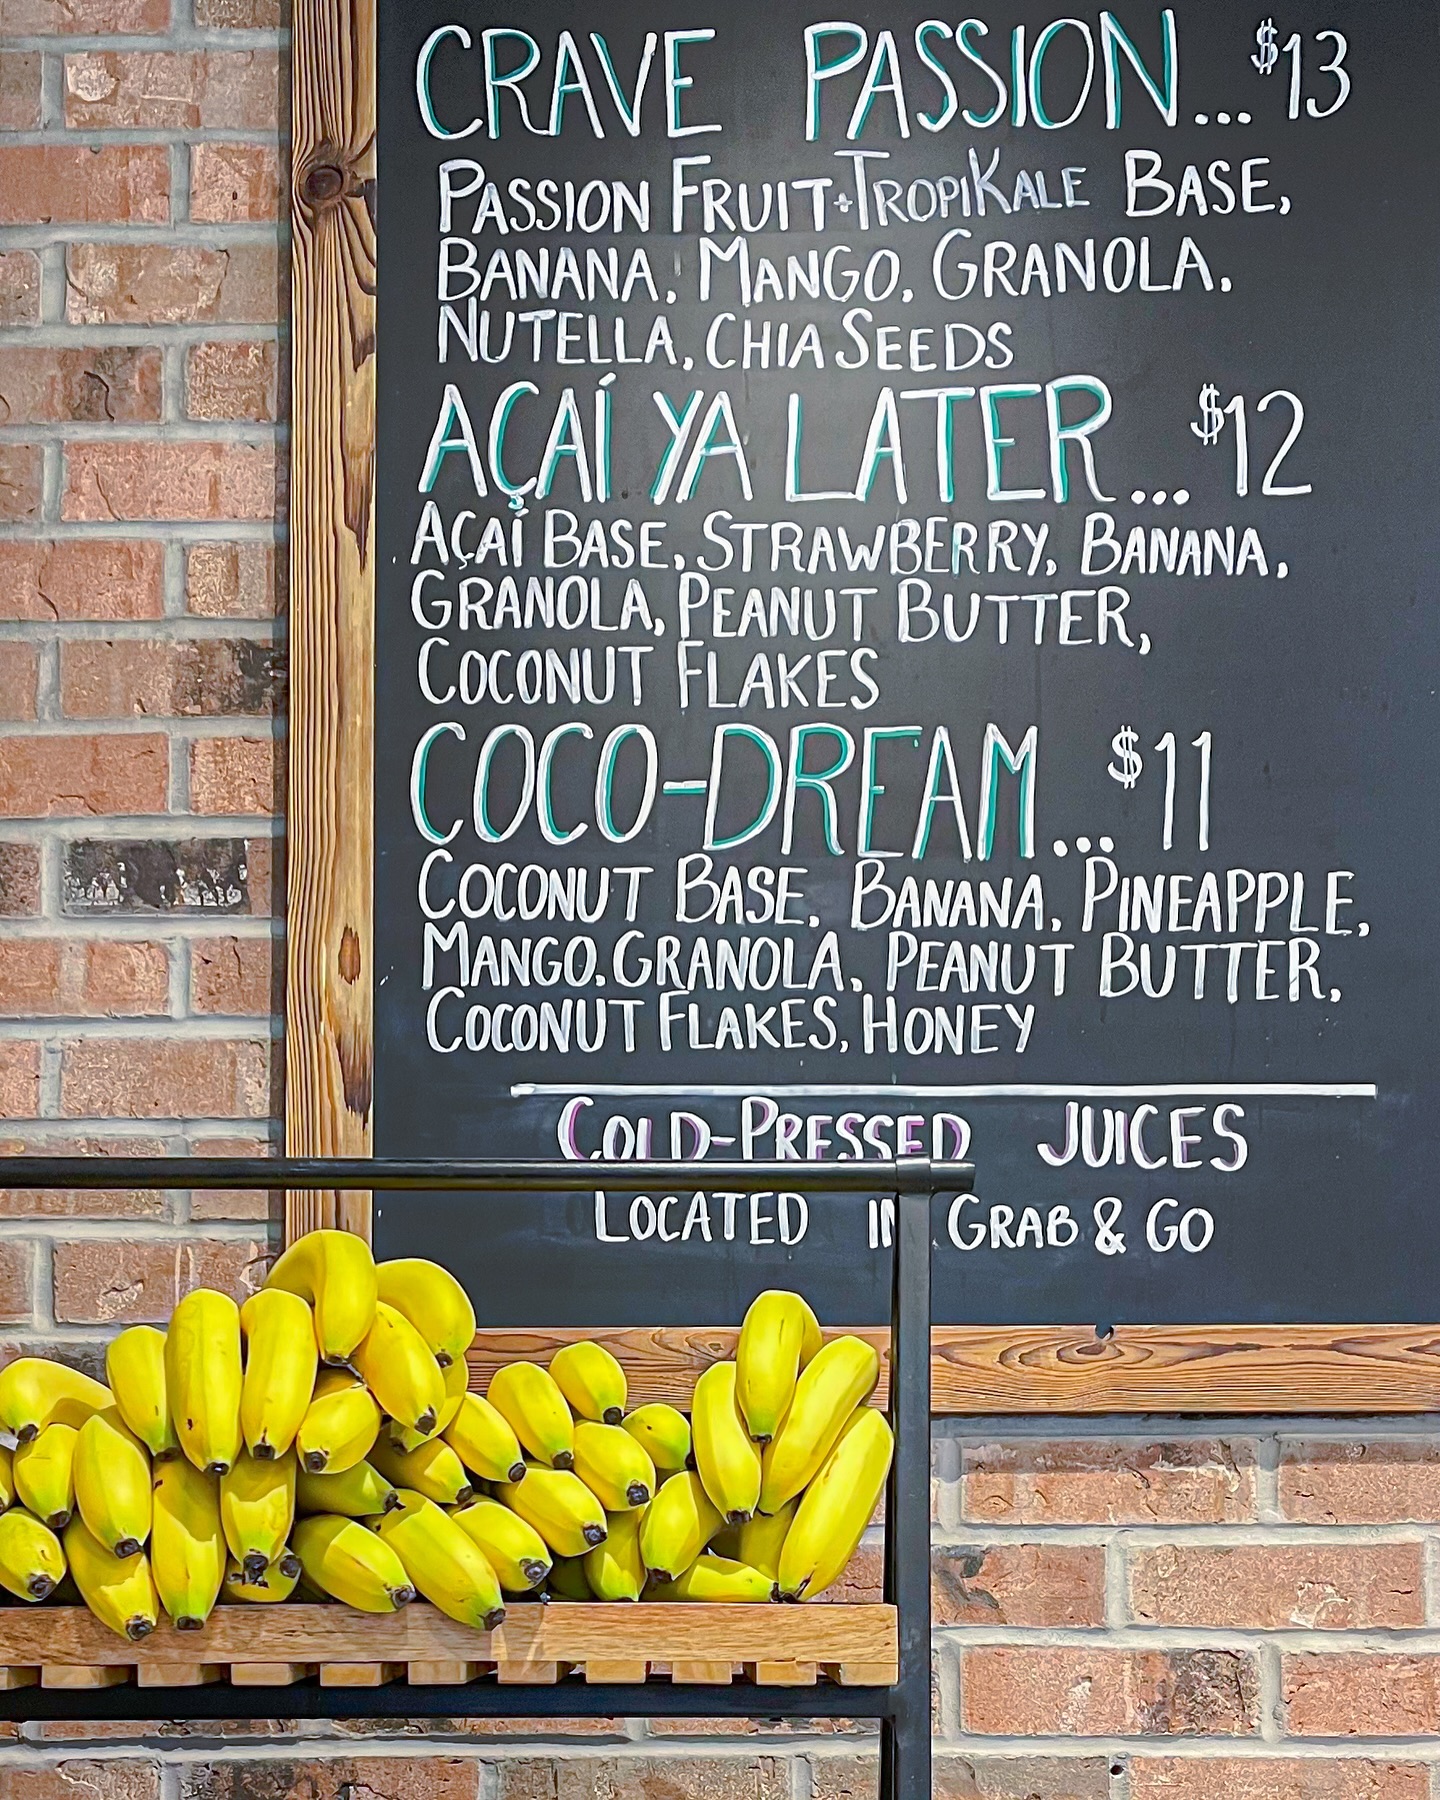 CRAVE PASSION... $13
PASSION FRUIT + TROPIKALE BASE,
BANANA, MANGO, GRANOLA,
NUTELLA, CHIA SEEDS
AÇAÍ YA LATER... $12
AÇAÍ BASE, STRAWBERRY, BANANA,
GRANOLA, PEANUT BUTTER,
COCONUT FLAKES
COCO-DREAM... $11
COCONUT BASE, BANANA, PINEAPPLE,
MANGO, GRANOLA, PEANUT BUTTER,
COCONUT FLAKES, HONEY
COLD-PRESSED JUICES
LOCATED IN GRAB & GO